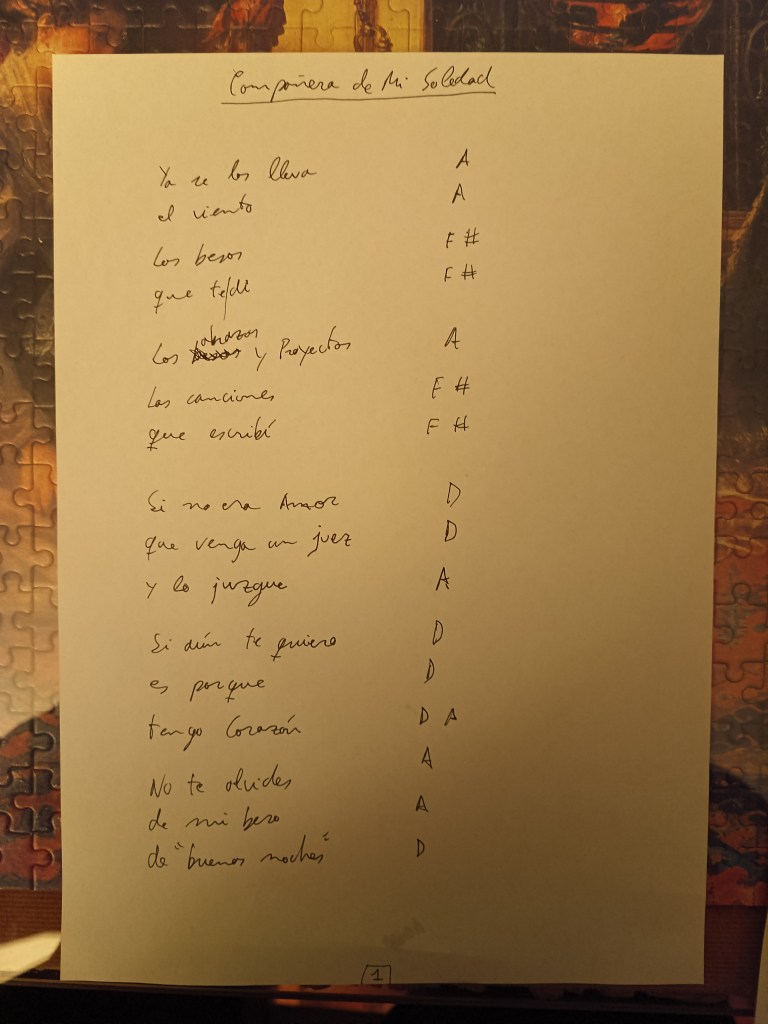 Compañera de Mi Soledad
Ya se los lleva A
el viento A
Los besos F#
que te/di F#
Los abrazos y Proyectos A
Las canciones F#
que escribí F#
Si no era Amor D
que venga un juez D
y lo juzgue A
Si aún te quiero D
es porque D
tengo Corazón D A
No te olvides A
de mi beso A
de "buenas noches" D
1